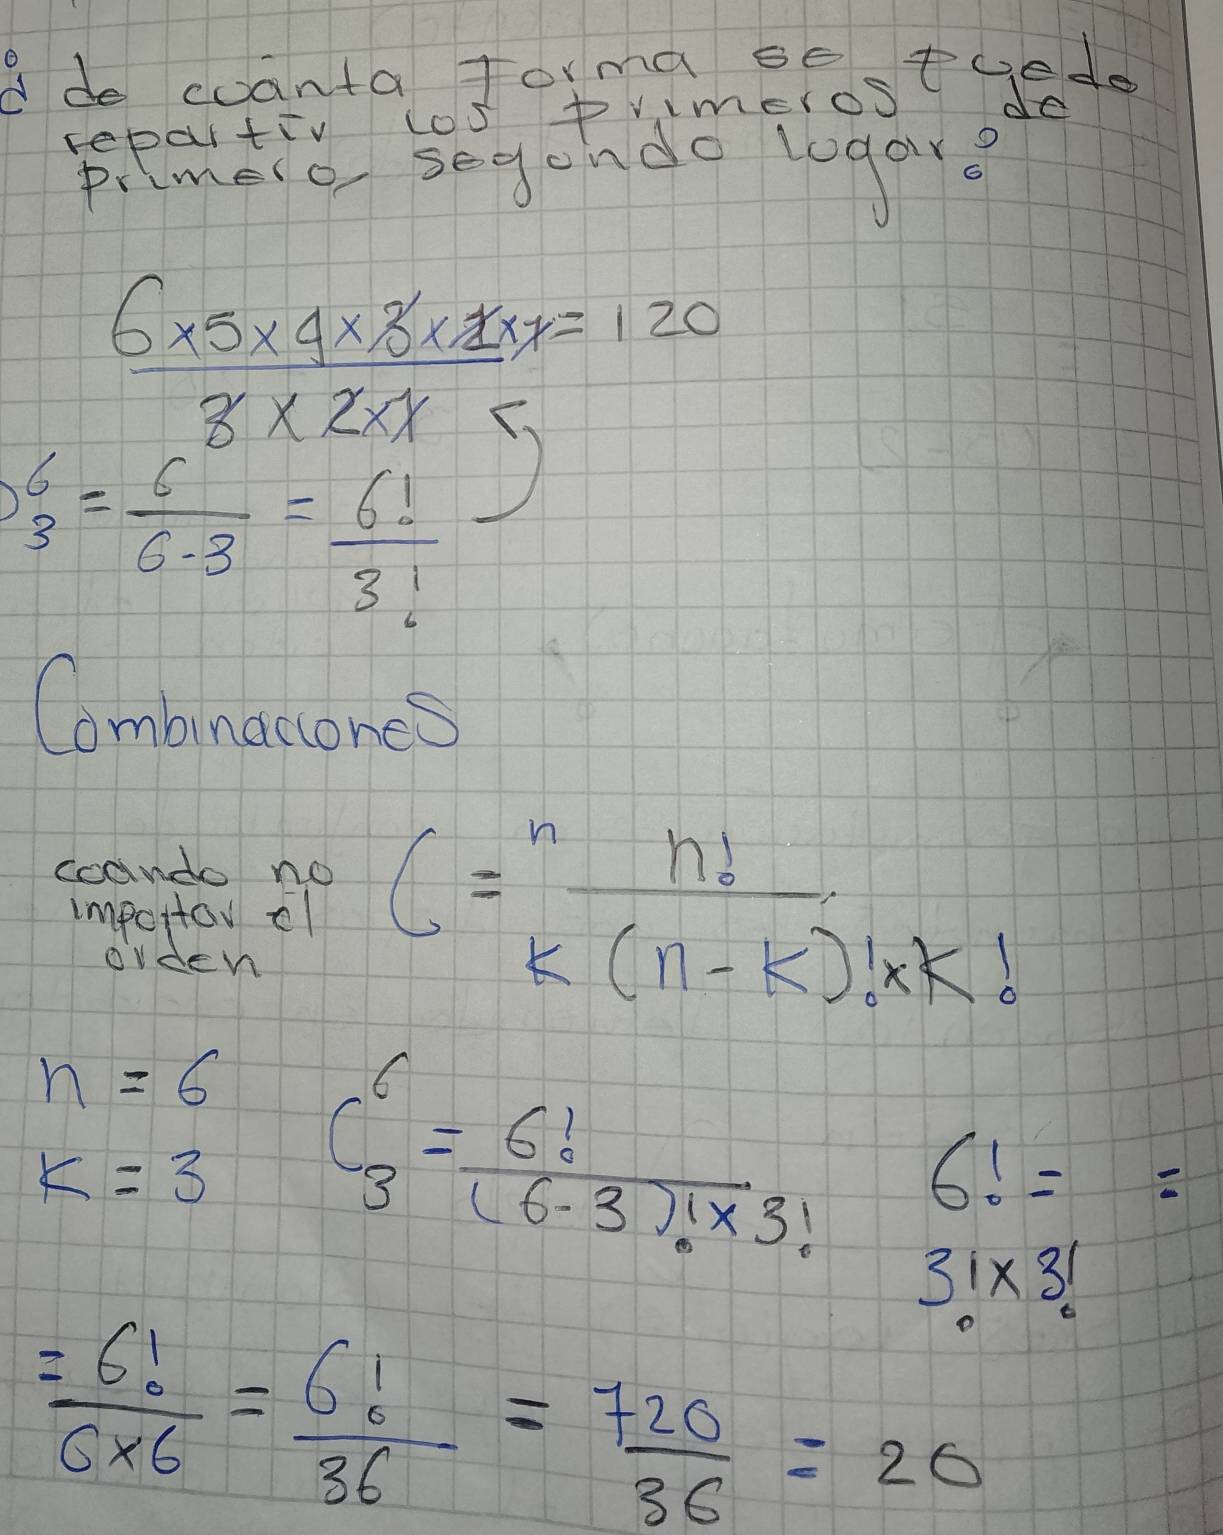 ¿ de cuánta forma se puede
repartir los primeros de
primero, segundo lugar?
6x5x4x3x2x1 = 120
3 x 2x1
6
3 = 6 / 6-3 = 6! / 3!
Combinaciones
cuando no
importar el
orden
C = n n!
k (n - k)! x k!
n = 6
k = 3
C 6 3 = 6! / (6-3)! x 3!
6! = =
3! x 3!
= 6! / 6x6 = 6! / 36 = 720 / 36 = 20